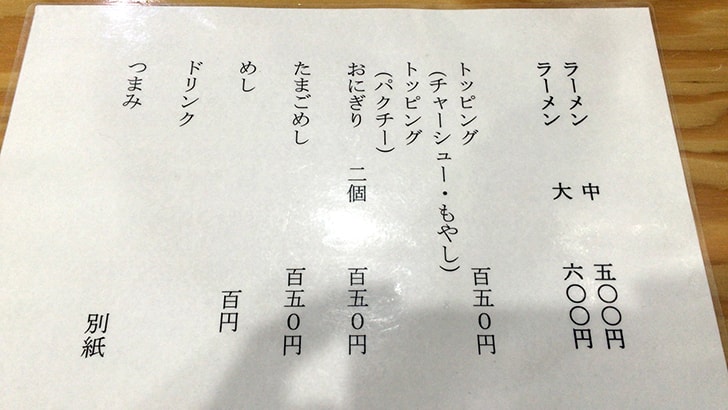 ラーメン 中 五〇〇円
ラーメン 大 六〇〇円
トッピング 百五0円
(チャーシュー・もやし)
トッピング
(パクチー)
おにぎり 二個 百五0円
たまごめし 百五0円
めし 百円
ドリンク
つまみ 別紙